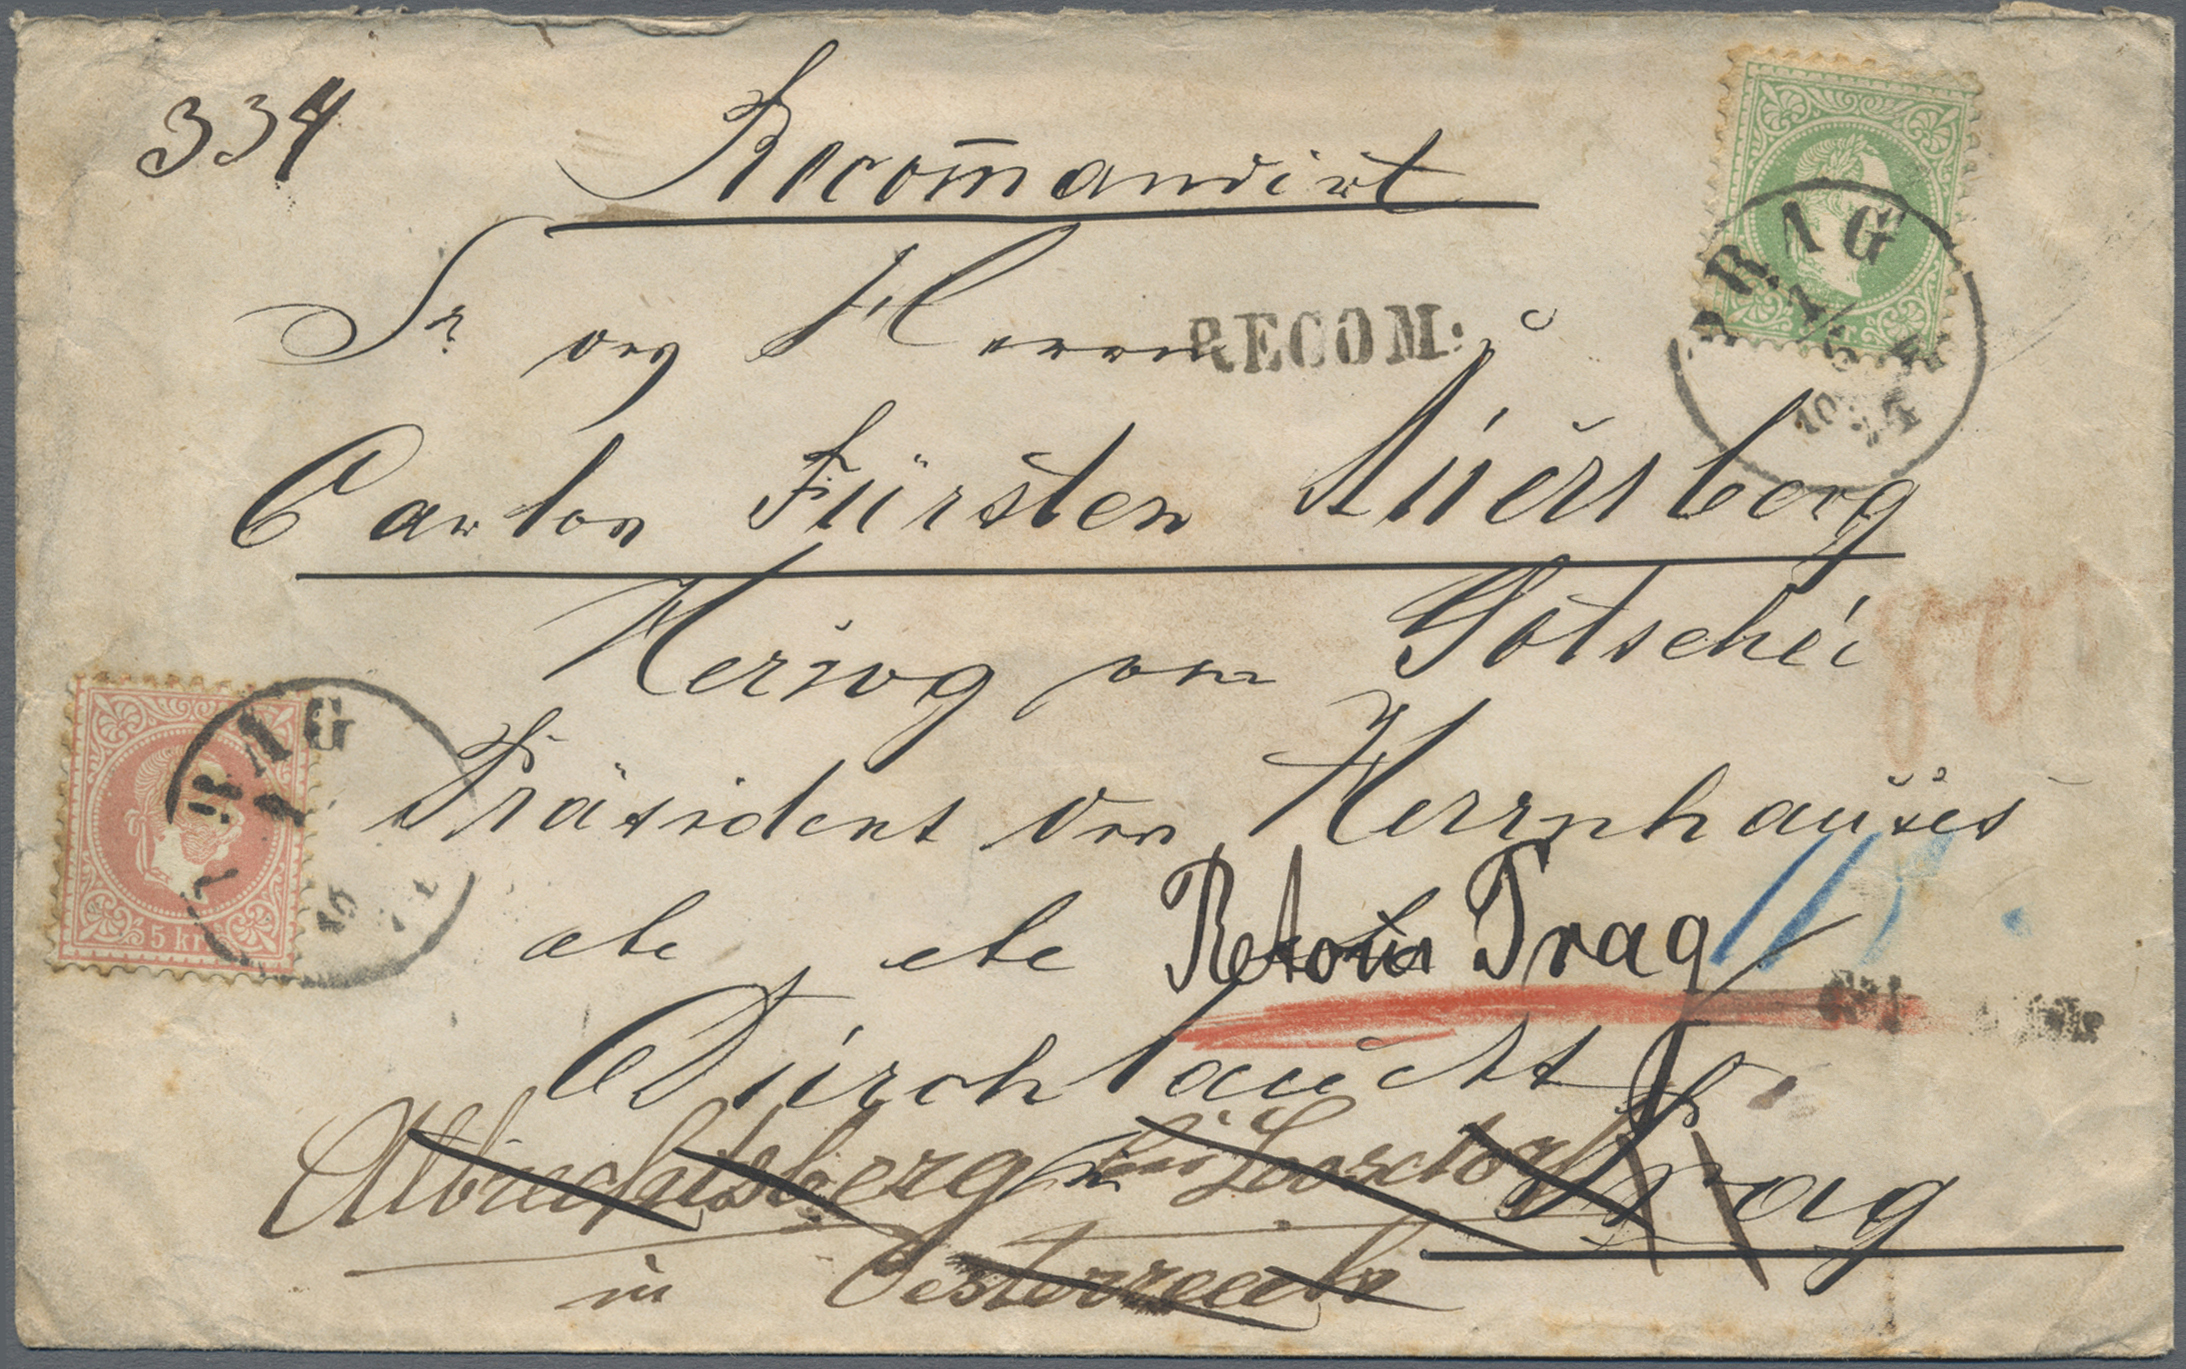 334
Recom̄andirt
Sr
Herrn
RECOM:
PRAG
Carlos Fürsten Auersberg
Herzog von Gotschei
Präsident von Herrnhauses
etc etc
Retour Prag
Durchlaucht
Albrechtsberg bei Loosdorf
Prag
in Oesterreich
PRAG
5 kr